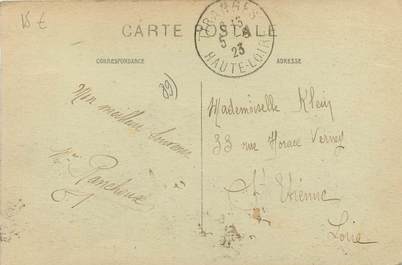 15 €
CARTE POSTALE
CORRESPONDANCE
ADRESSE
5 - 8
23
HAUTE-LOIRE
89)
Mon meilleur souvenir
Mademoiselle Klein
33 rue Horace Vernet
St Etienne
Loire